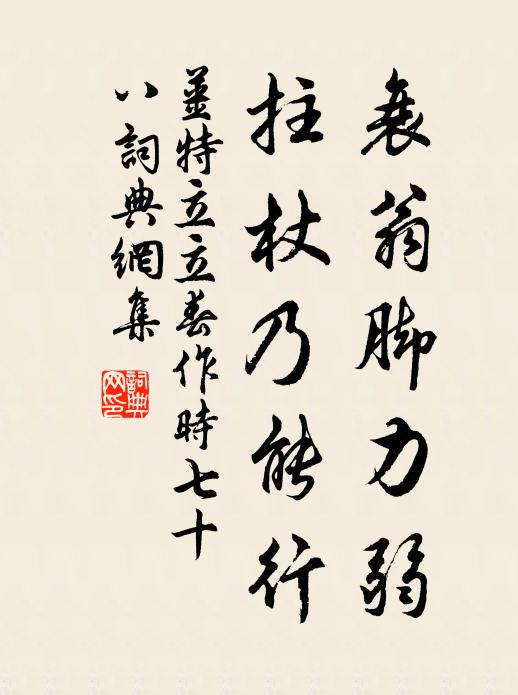 衰翁脚力弱
拄杖乃能行
姜特立立春作時七十
八詞典網集
詞典
网印